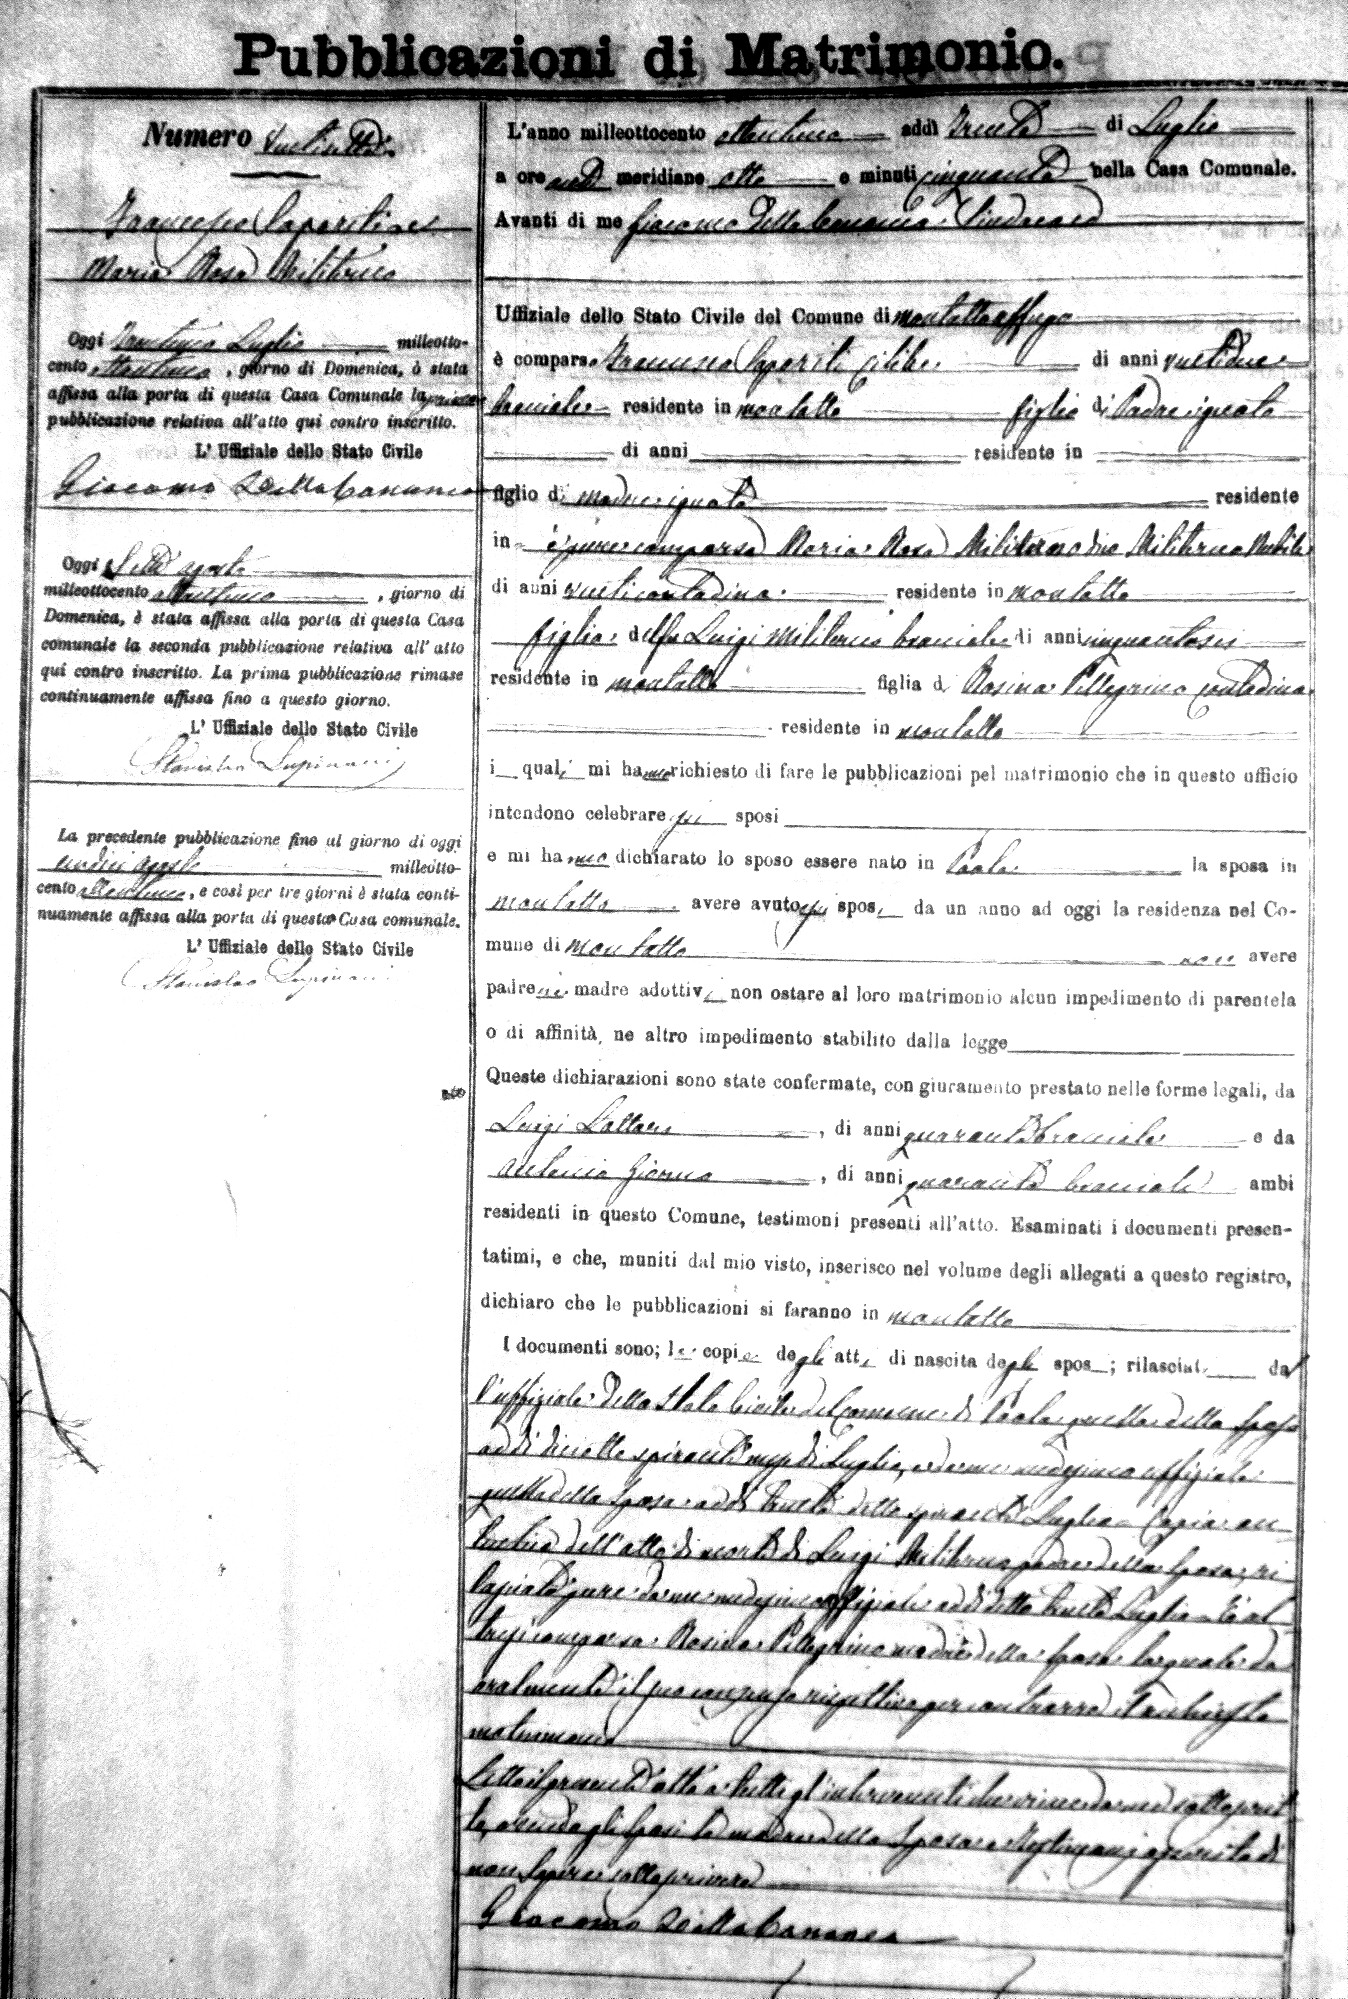 Pubblicazioni di Matrimonio.
Numero ventisette
Francesco Saporiti ed
Maria Rosa Militerno
Oggi trentuno Luglio milleotto-
cento ottantuno, giorno di Domenica, è stata
affissa alla porta di questa Casa Comunale la prima
pubblicazione relativa all'atto qui contro inscritto.
L'Uffiziale dello Stato Civile
Giacomo Della Cananea
Oggi Sette agosto
milleottocento ottantuno, giorno di
Domenica, è stata affissa alla porta di questa Casa
comunale la seconda pubblicazione relativa all'atto
qui contro inscritto. La prima pubblicazione rimase
continuamente affissa fino a questo giorno.
L'Uffiziale dello Stato Civile
Stanislao Lupinacci
La precedente pubblicazione fino al giorno di oggi
undici agosto milleotto-
cento ottantuno, e così per tre giorni è stata conti-
nuamente affissa alla porta di questa Casa comunale.
L'Uffiziale dello Stato Civile
Stanislao Lupinacci
L'anno milleottocento ottantuno addì Trenta di Luglio
a ore anti meridiane otto e minuti cinquanta nella Casa Comunale.
Avanti di me Giacomo Della Cananea Sindaco
Uffiziale dello Stato Civile del Comune di Montalto Uffugo
è comparso Francesco Saporiti celibe di anni ventidue
bracciale residente in Montalto figlio di Padre ignoto
di anni residente in
figlio di madre ignota residente
in è pure comparsa Maria Rosa Militerno Nubile
di anni venti contadina residente in Montalto
figlia del fu Luigi Militerno bracciale di anni cinquantasei
residente in Montalto figlia di Rosina Pellegrino contadina
residente in Montalto
i quali mi hanno richiesto di fare le pubblicazioni pel matrimonio che in questo ufficio
intendono celebrare gli sposi
e mi hanno dichiarato lo sposo essere nato in Paola la sposa in
Montalto avere avuto gli sposi da un anno ad oggi la residenza nel Co-
mune di Montalto non avere
padre nè madre adottivi non ostare al loro matrimonio alcun impedimento di parentela
o di affinità, ne altro impedimento stabilito dalla legge
Queste dichiarazioni sono state confermate, con giuramento prestato nelle forme legali, da
Luigi di anni quaranta bracciale e da
Antonio Giorno, di anni quaranta bracciale ambi
residenti in questo Comune, testimoni presenti all'atto. Esaminati i documenti presen-
tatimi, e che, muniti dal mio visto, inserisco nel volume degli allegati a questo registro,
dichiaro che le pubblicazioni si faranno in Montalto
I documenti sono; le copie degli atti di nascita degli sposi; rilasciat da
l'uffiziale dello Stato Civile del Comune di Paola quella dello sposo
addì diciotto spirante mese di Luglio, e da me medesimo uffiziale
quella della sposa addì trenta dello spirante Luglio Copia au-
tentica dell'atto di morte di Luigi Militerno padre della sposa, ri
lasciata pure da me medesimo uffiziale addì detto trenta Luglio È al
tresì comparsa Rosina Pellegrino madre della sposa la quale dà
oralmente il suo consenso rispettivo per contrarre il anchiesto
matrimonio
Letto il presente atto a tutti gl'intervenuti viene da me sottoscrit
to, avendo gli sposi la madre della sposa e testimoni asserito di
non sapere sottoscrivere
Giacomo Della Cananea